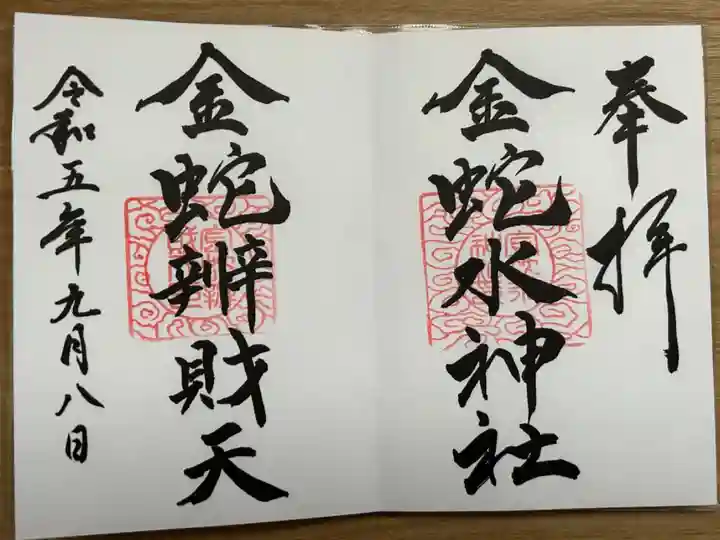 奉拝
金蛇水神社
金蛇辨財天
令和五年九月八日